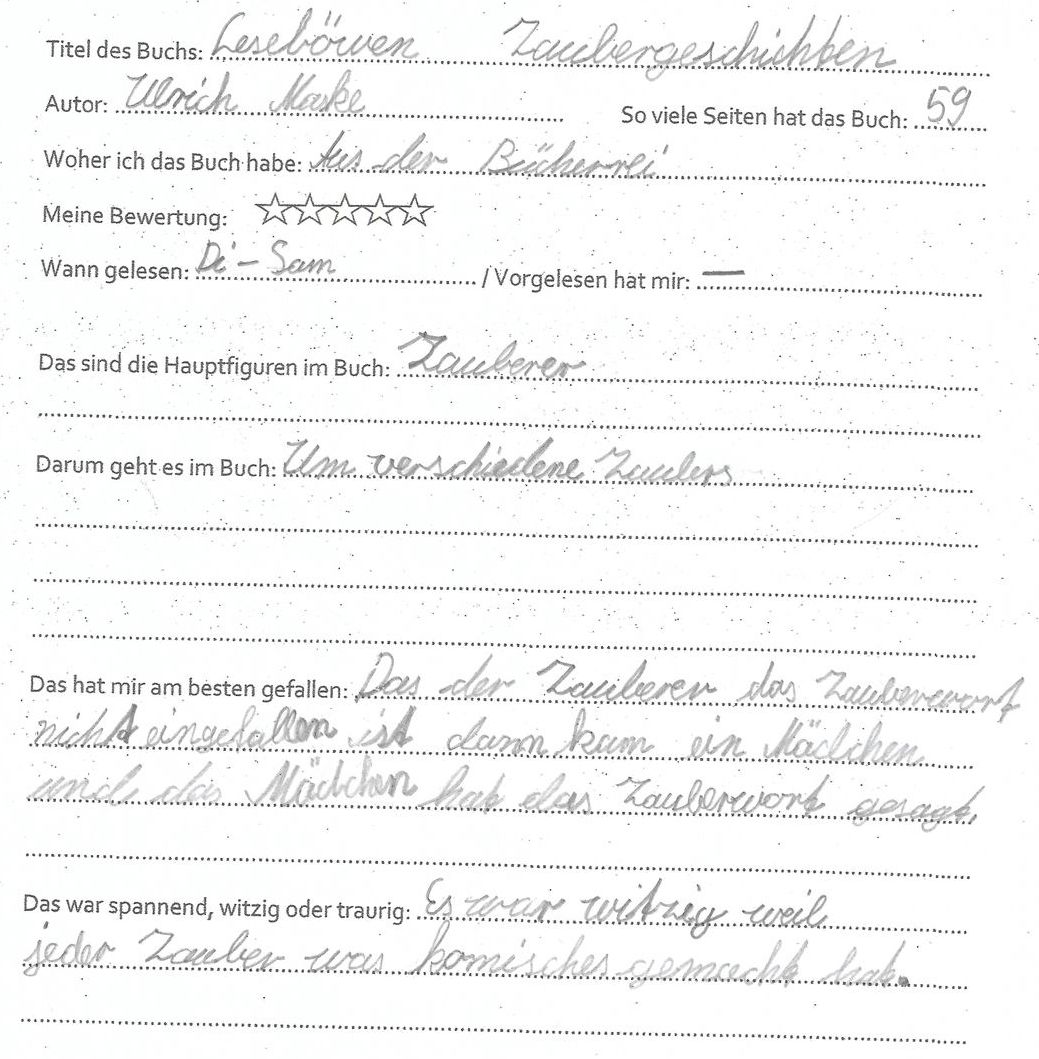 Titel des Buchs: Leseböwen Zaubergeschichten
Autor: Ulrich Maske So viele Seiten hat das Buch: 59
Woher ich das Buch habe: Aus der Bücherrei
Meine Bewertung: ☆☆☆☆☆
Wann gelesen: Di - Sam / Vorgelesen hat mir: —
Das sind die Hauptfiguren im Buch: Zauberer
Darum geht es im Buch: Um verschiedene Zaubers
Das hat mir am besten gefallen: Das der Zauberer das Zauberwort
nicht eingefallen ist dann kam ein Mädchen
und das Mädchen hat das Zauberwort gesagt.
Das war spannend, witzig oder traurig: Es war witzig weil
jeder Zauber was komisches gemacht hat.